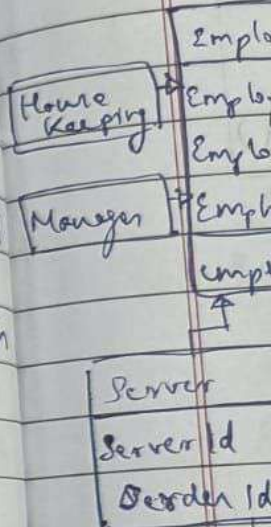 Emplo
House
Keeping
Emplo
Emplo
Manager
Empl
emp
Server
Server Id